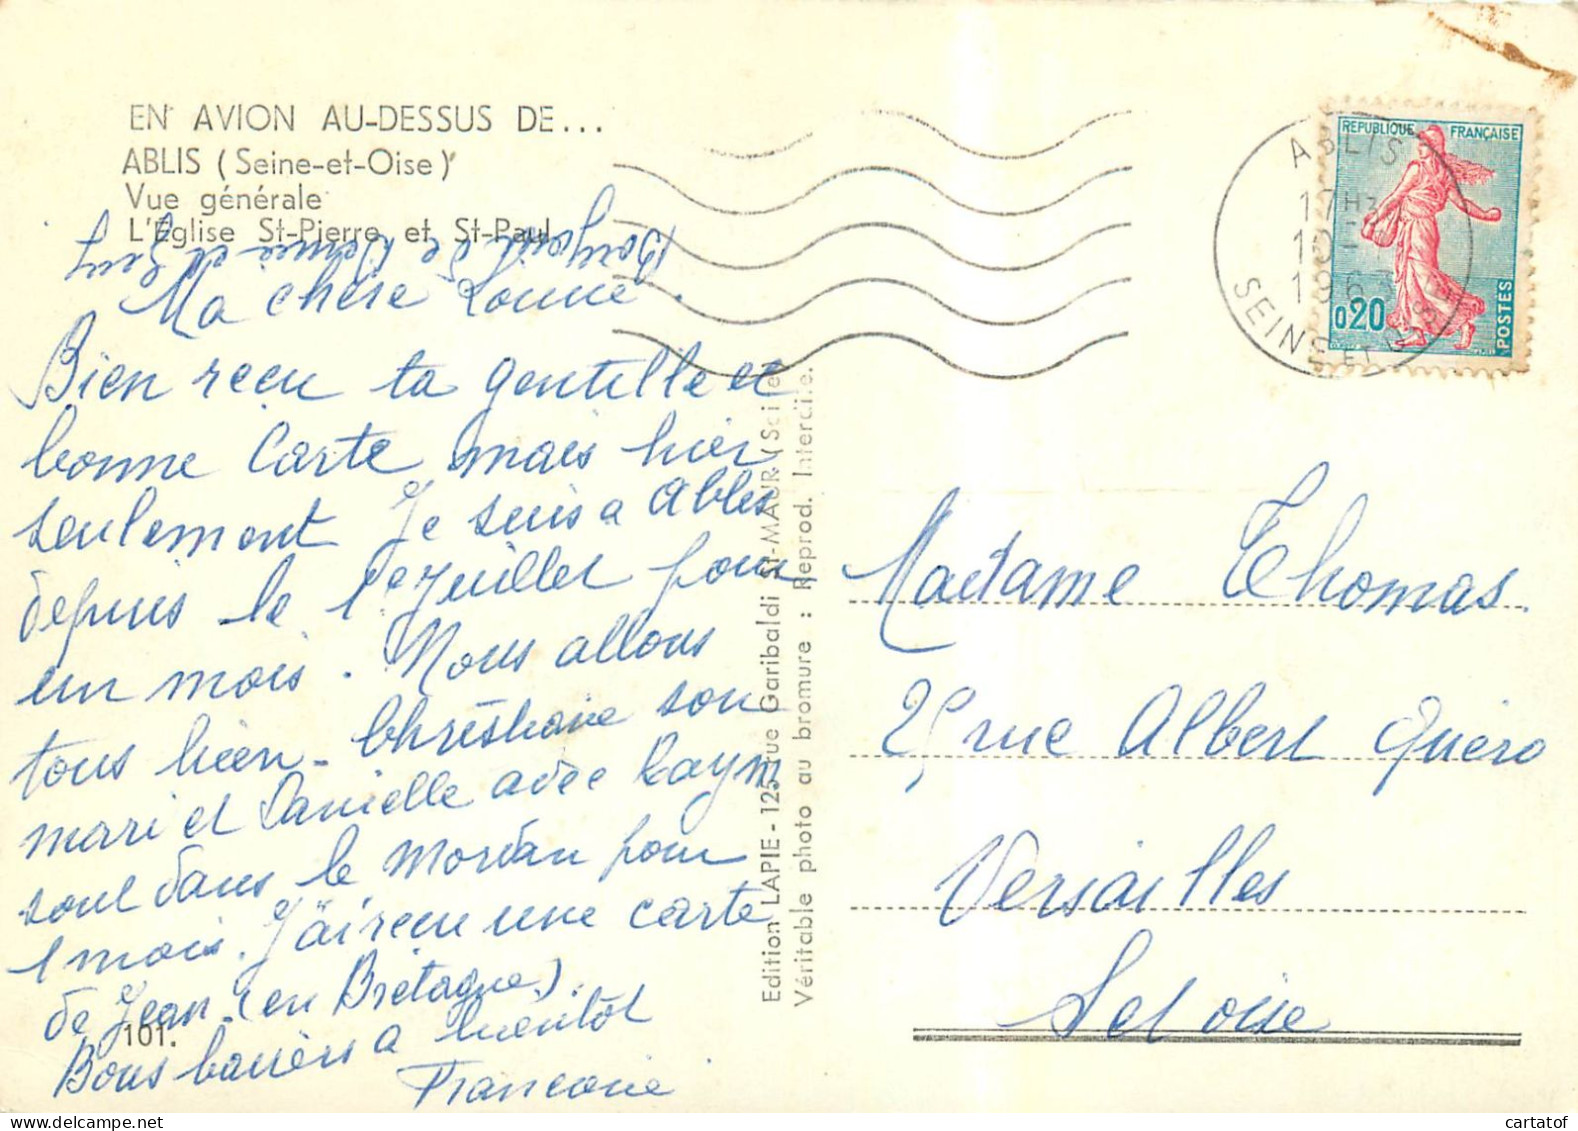 EN AVION AU-DESSUS DE...
ABLIS (Seine-et-Oise)
Vue générale
L'Église St-Pierre et St-Paul
Ma chère
Bien recu ta gentille et
bonne Carte mais hier
seulement Je suis a Ablis
depuis le 1er Juillet pour
un mois. Nous allons
tous bien - Christiane son
mari et Danielle avec Raym
sont dans le Morvan pour
1 mois. J'ai recu une carte
de Jean. (en Bretagne).
Bons baisers a bientôt
101.
Edition LAPIE - 125, rue Garibaldi St-MAUR (Seine
Véritable photo au bromure : Reprod. Interdite.
REPUBLIQUE FRANÇAISE
0,20
POSTES
ABLIS
17H
1963
SEINE ET OISE
Madame Thomas
rue Albert
Versailles
S et Oise
cartatof